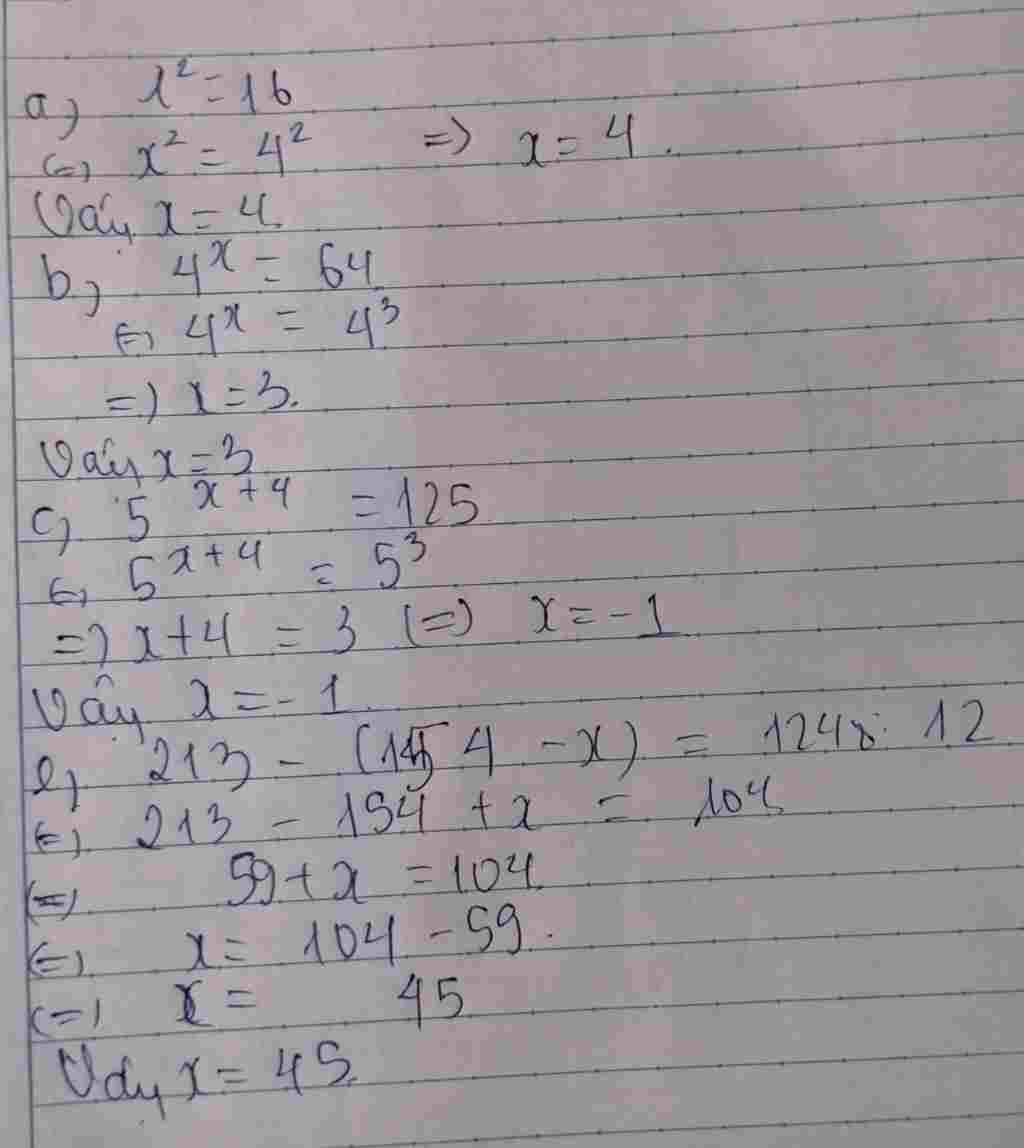 a) x² = 16
(=) x² = 4² => x = 4.
Vậy x = 4.
b) 4ˣ = 64
(=) 4ˣ = 4³
=) x = 3.
Vậy x = 3
c) 5ˣ⁺⁴ = 125
(=) 5ˣ⁺⁴ = 5³
=) x + 4 = 3 (=) x = -1
Vậy x = -1
e) 213 - (154 - x) = 1248 : 12
(=) 213 - 154 + x = 104
(=) 59 + x = 104
(=) x = 104 - 59.
(=) x = 45
Vậy x = 45